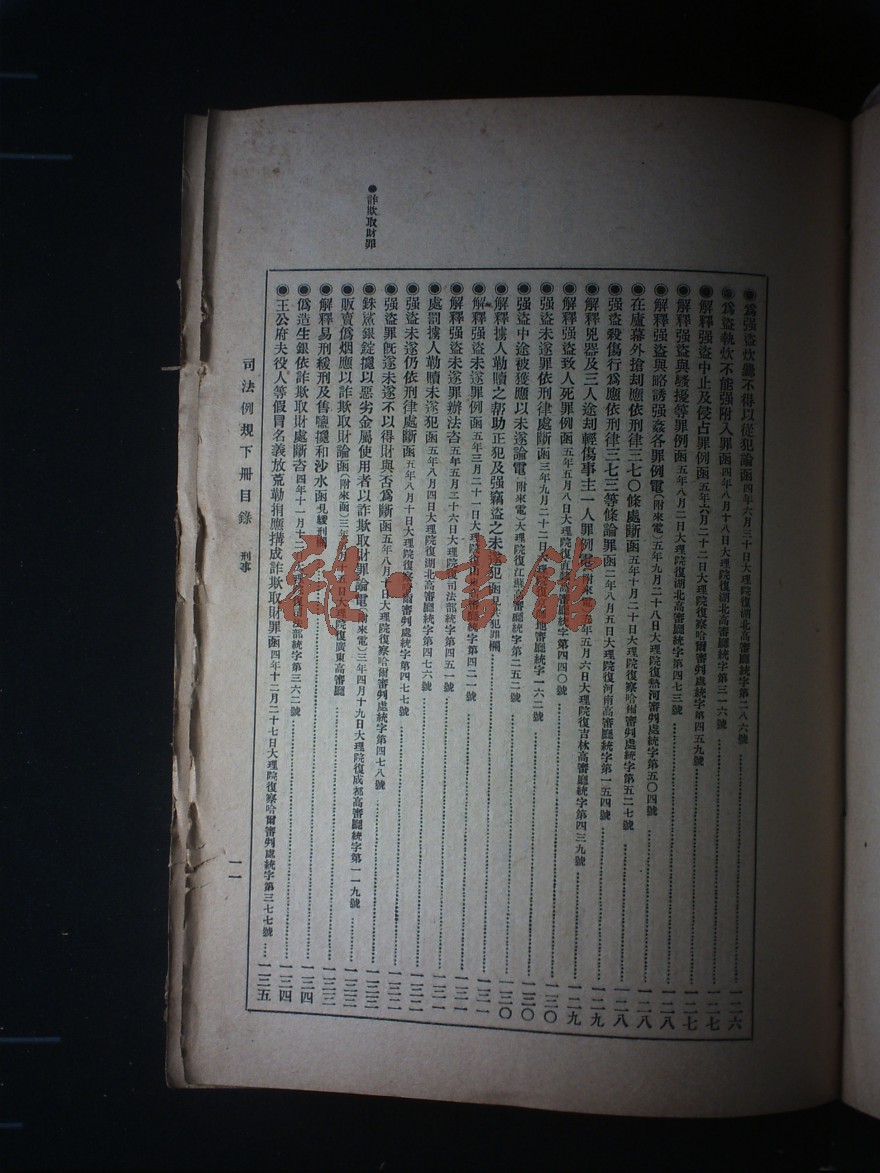 ◉爲强盜炊爨不得以從犯論函四年六月三十日大理院復湖北高審廳統字第二八六號…一二六
◉爲盜執炊不能强附入罪函四年八月十八日大理院復湖北高審廳統字第三一六號…一二七
◉解釋强盜中止及侵占罪例函五年六月二十二日大理院復察哈爾審判處統字第四五九號…一二七
◉解釋强盜與騷擾等罪例函五年八月二日大理院復湖北高審廳統字第四七三號…一二八
◉解釋强盜與略誘强姦各罪例電(附來電)五年九月二十八日大理院復熱河審判處統字第五〇四號…一二八
◉在廬幕外搶刧應依刑律三七〇條處斷函五年十月二十日大理院復察哈爾審判處統字第五二七號…一二八
◉强盜殺傷行爲應依刑律三七三等條論罪函二年八月五日大理院復河南高審廳統字第一五四號…一二九
◉解釋兇器及三人途刧輕傷事主一人罪例電(附來電)五年五月六日大理院復吉林高審廳統字第四三九號…一二九
◉解釋强盜致人死罪例函五年五月八日大理院復直隸高審廳統字第四四〇號…一三〇
◉强盜未遂罪依刑律處斷函三年九月二十二日大理院復地審廳統字一六二號…一三〇
◉强盜中途被獲應以未遂論電(附來電)大理院復江蘇高審廳統字第二五二號…一三〇
◉解釋擄人勒贖之幇助正犯及强竊盜之未遂犯函見共犯罪欄…一三一
◉解釋强盜未遂罪例函五年三月二十一日大理院復高審廳統字第四二一號…一三一
◉解釋强盜未遂罪辦法咨五年五月二十六日大理院復司法部統字第四五一號…一三一
◉處罰擄人勒贖未遂犯函五年八月四日大理院復湖北高審廳統字第四七六號…一三二
◉强盜未遂仍依刑律處斷函五年八月十日大理院復察哈爾審判處統字第四七七號…一三二
◉强盜罪旣遂未遂不以得財與否爲斷函五年八月十日大理院復察哈爾審判處統字第四七八號…一三三
●詐欺取財罪
◉銖鯊銀錠攙以惡劣金屬使用者以詐欺取財罪論電(附來電)三年四月十九日大理院復成都高審廳統字第一一九號…一三三
◉販賣僞烟應以詐欺取財論函(附來函)三年十五日大理院復廣東高審廳…一三三
◉解釋易刑緩刑及售鹽攙和沙水函見緩刑欄…一三四
◉僞造生銀依詐欺取財處斷咨四年十一月十二日大理院復司法部統字第三六二號…一三四
◉王公府夫役人等假冒名義放荒勒捐應搆成詐欺取財罪函四年十二月二十七日大理院復察哈爾審判處統字第三七七號…一三五
司法例規下册目錄 刑事 一一
雜·書館